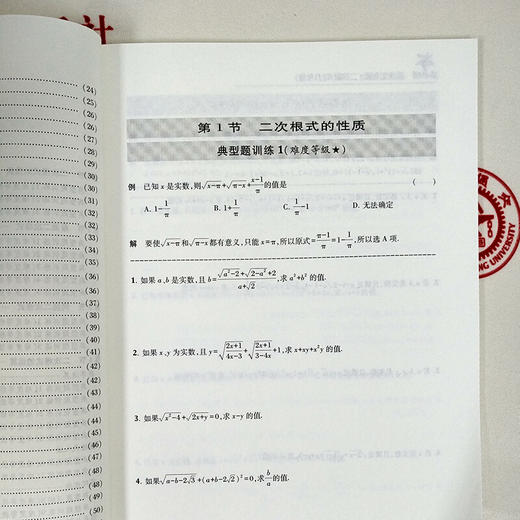 (24)
(25)
(26)
(27)
(28)
(29)
(30)
(31)
(32)
(33)
(34)
(35)
(36)
(37)
(38)
(39)
(40)
(41)
(42)
(43)
(44)
(45)
(46)
(47)
(48)
(49)
(50)
第1节 二次根式的性质
典型题训练1(难度等级★)
例 已知x是实数,则√(x-π)+√(π-x)+(x-1)/π的值是 ( )
A. 1-1/π B. 1+1/π C. 1/π-1 D. 无法确定
解 要使√(x-π)和√(π-x)都有意义,只能x=π,所以原式=(π-1)/π=1-1/π,所以选A项.
1. 如果a,b是实数,且b=(√(a²-2)+√(2-a²)+2)/(a+√2),求a²+b²的值.
2. 如果x,y为实数,且y=√((2x+1)/(4x-3))+√((2x+1)/(3-4x))+1,求x+xy+x²y的值.
3. 如果√(x²-4)+√(2x+y)=0,求x-y的值.
4. 如果√(a-b-2√3)+(a+b-2√2)²=0,求b/a的值.